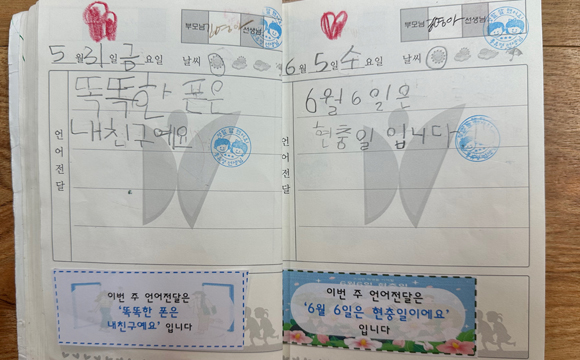 부모님 선생님
5 월 31 일 금 요일 날씨
똑똑한 폰은
내친구예요
언어전달
이번 주 언어전달은
'똑똑한 폰은
내친구예요' 입니다
부모님 선생님
6 월 5 일 수 요일 날씨
6월 6일은
현충일 입니다.
언어전달
이번 주 언어전달은
'6월 6일은 현충일이에요'
입니다